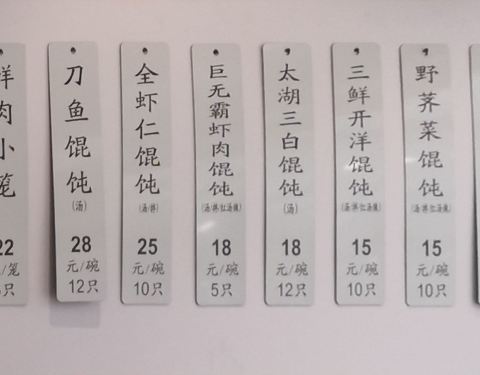 鲜肉小笼
22
元/笼
刀鱼馄饨
(汤)
28
元/碗
12只
全虾仁馄饨
(汤/拌)
25
元/碗
10只
巨无霸虾肉馄饨
18
元/碗
5只
太湖三白馄饨
(汤)
18
元/碗
12只
三鲜开洋馄饨
15
元/碗
10只
野荠菜馄饨
15
元/碗
10只